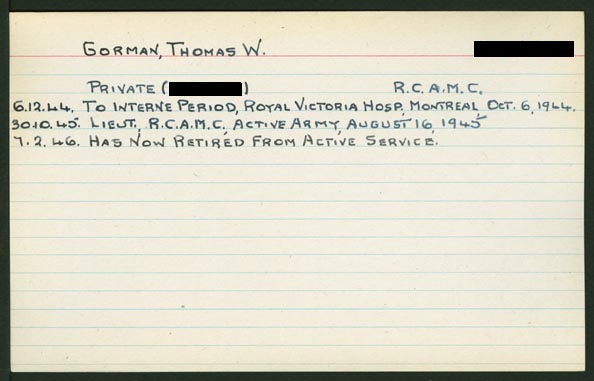 GORMAN, THOMAS W.
PRIVATE ( ) R.C.A.M.C.
6.12.44. TO INTERNE PERIOD, ROYAL VICTORIA HOSP. MONTREAL OCT. 6, 1944.
30.10.45. LIEUT, R.C.A.M.C, ACTIVE ARMY, AUGUST 16, 1945
7.2.46. HAS NOW RETIRED FROM ACTIVE SERVICE.